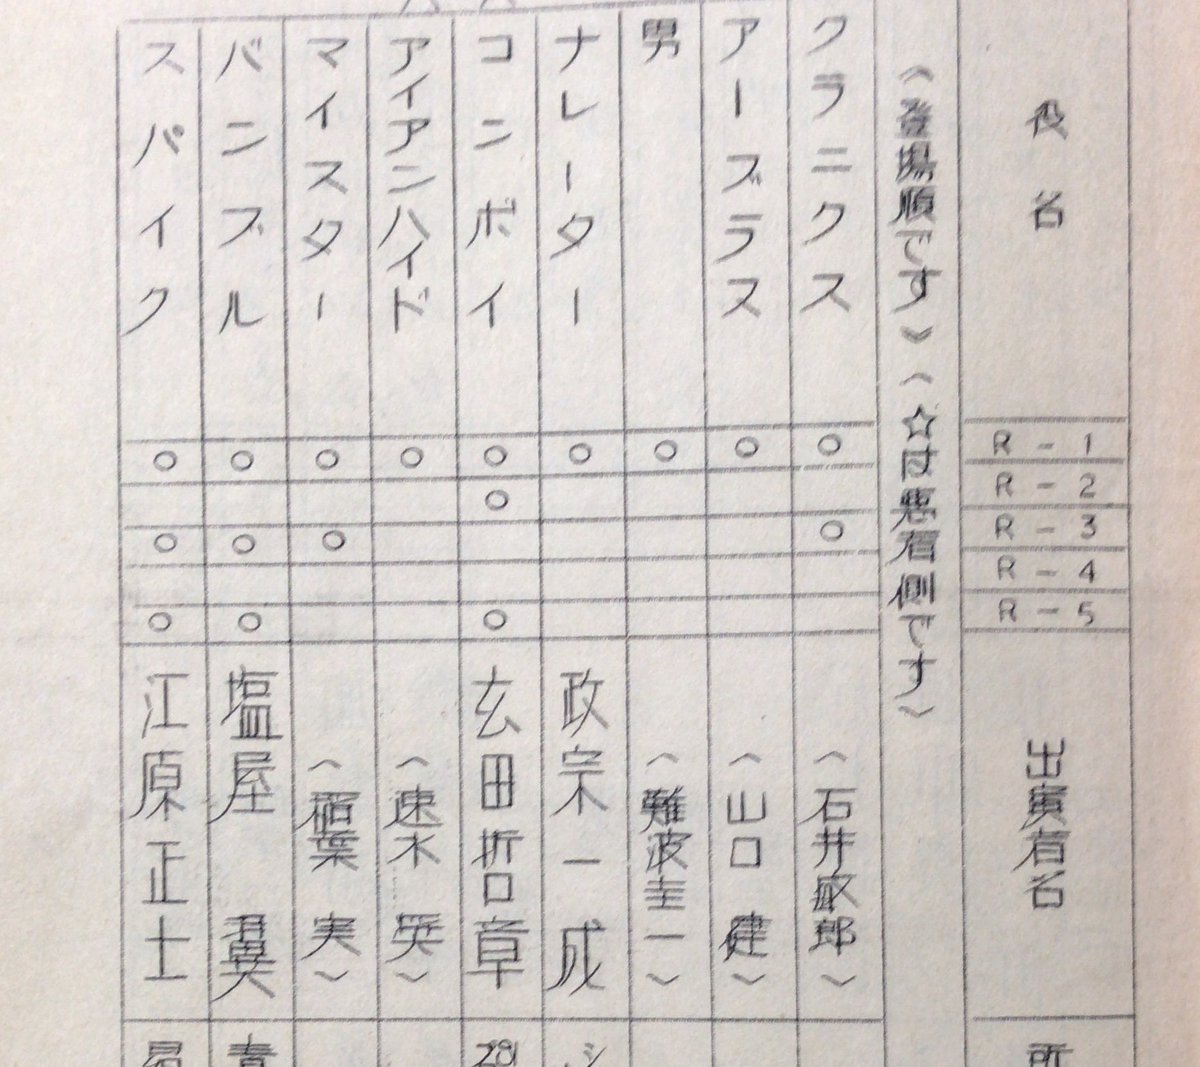 役名
R-1
R-2
R-3
R-4
R-5
出演者名
所
(登場順です)(☆は悪者側です)
クラニクス ○ ○ (石井敏郎)
アーブラス ○ (山口 健)
男 ○ (難波圭一)
ナレーター ○ 政宗一成
コンボイ ○ ○ ○ 玄田哲章
アイアンハイド ○ (速水 奨)
マイスター ○ ○ (稲葉 実)
バンブル ○ ○ ○ 塩屋 翼
スパイク ○ ○ ○ 江原正士